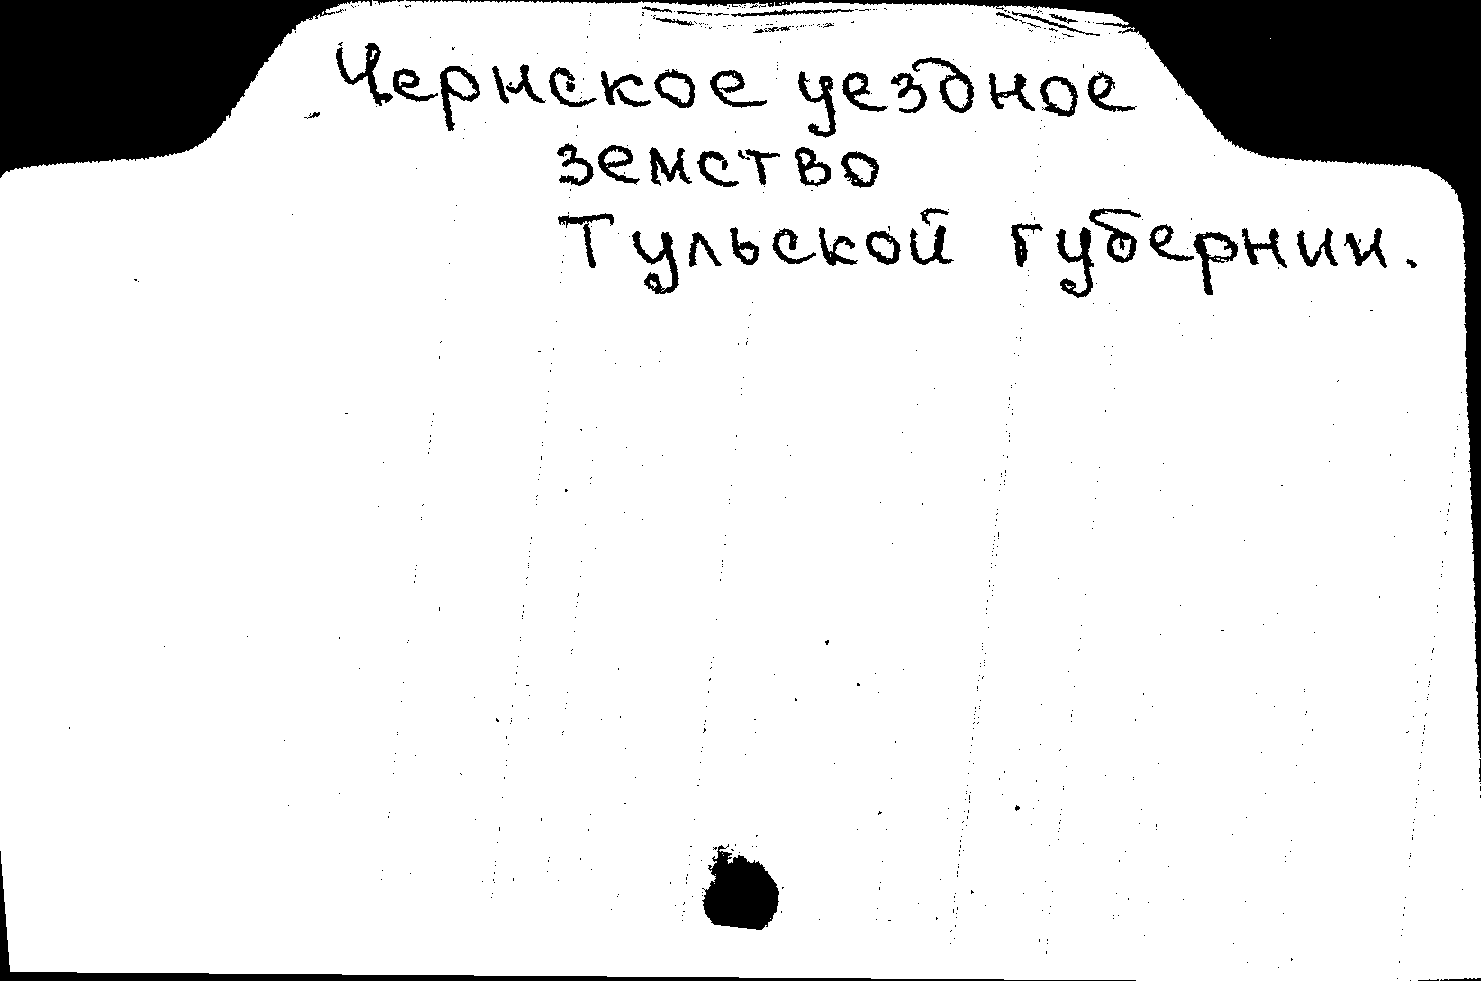 Чернское уездное
земство
Тульской губернии.